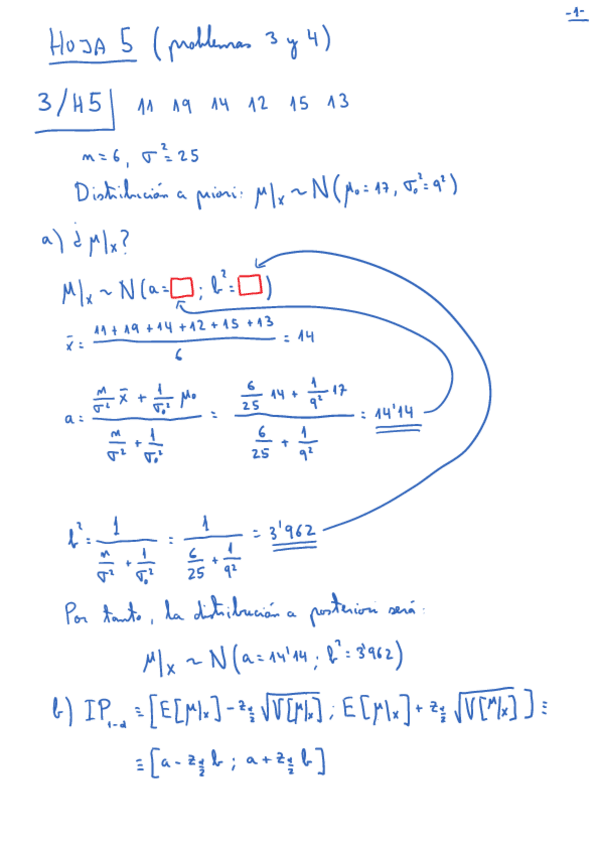 -1-
HOJA 5 (problemas 3 y 4)
3/H5 11 19 14 12 15 13
n=6, σ²=25
Distribución a priori: μ|x ~ N(μ₀=17, σ₀²=9²)
a) ¿μ|x?
μ|x ~ N(a=□; b²=□)
x̄ = (11+19+14+12+15+13)/6 = 14
a = (n/σ² x̄ + 1/σ₀² μ₀)/(n/σ² + 1/σ₀²) = (6/25 14 + 1/9² 17)/(6/25 + 1/9²) = 14'14
b² = 1/(n/σ² + 1/σ₀²) = 1/(6/25 + 1/9²) = 3'962
Por tanto, la distribución a posteriori será:
μ|x ~ N(a=14'14; b²=3'962)
b) IP₁₋α ≡ [E[μ|x] - z_α/2 √V[μ|x]; E[μ|x] + z_α/2 √V[μ|x]] ≡
≡ [a - z_α/2 b; a + z_α/2 b]